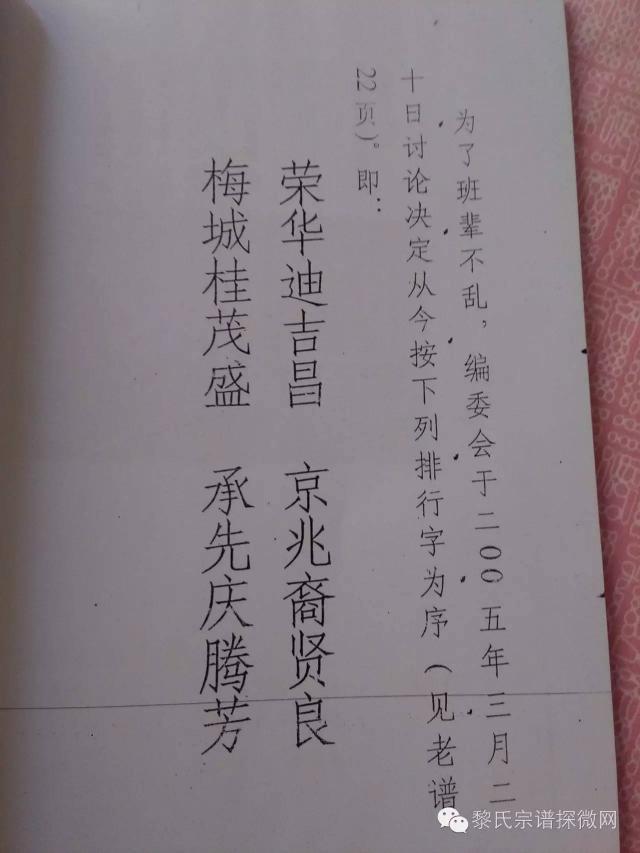 为了班辈不乱，编委会于二00五年三月二
十日讨论决定从今按下列排行字为序（见老谱
22页）。即：
荣华迪吉昌 京兆裔贤良
梅城桂茂盛 承先庆腾芳
黎氏宗谱探微网